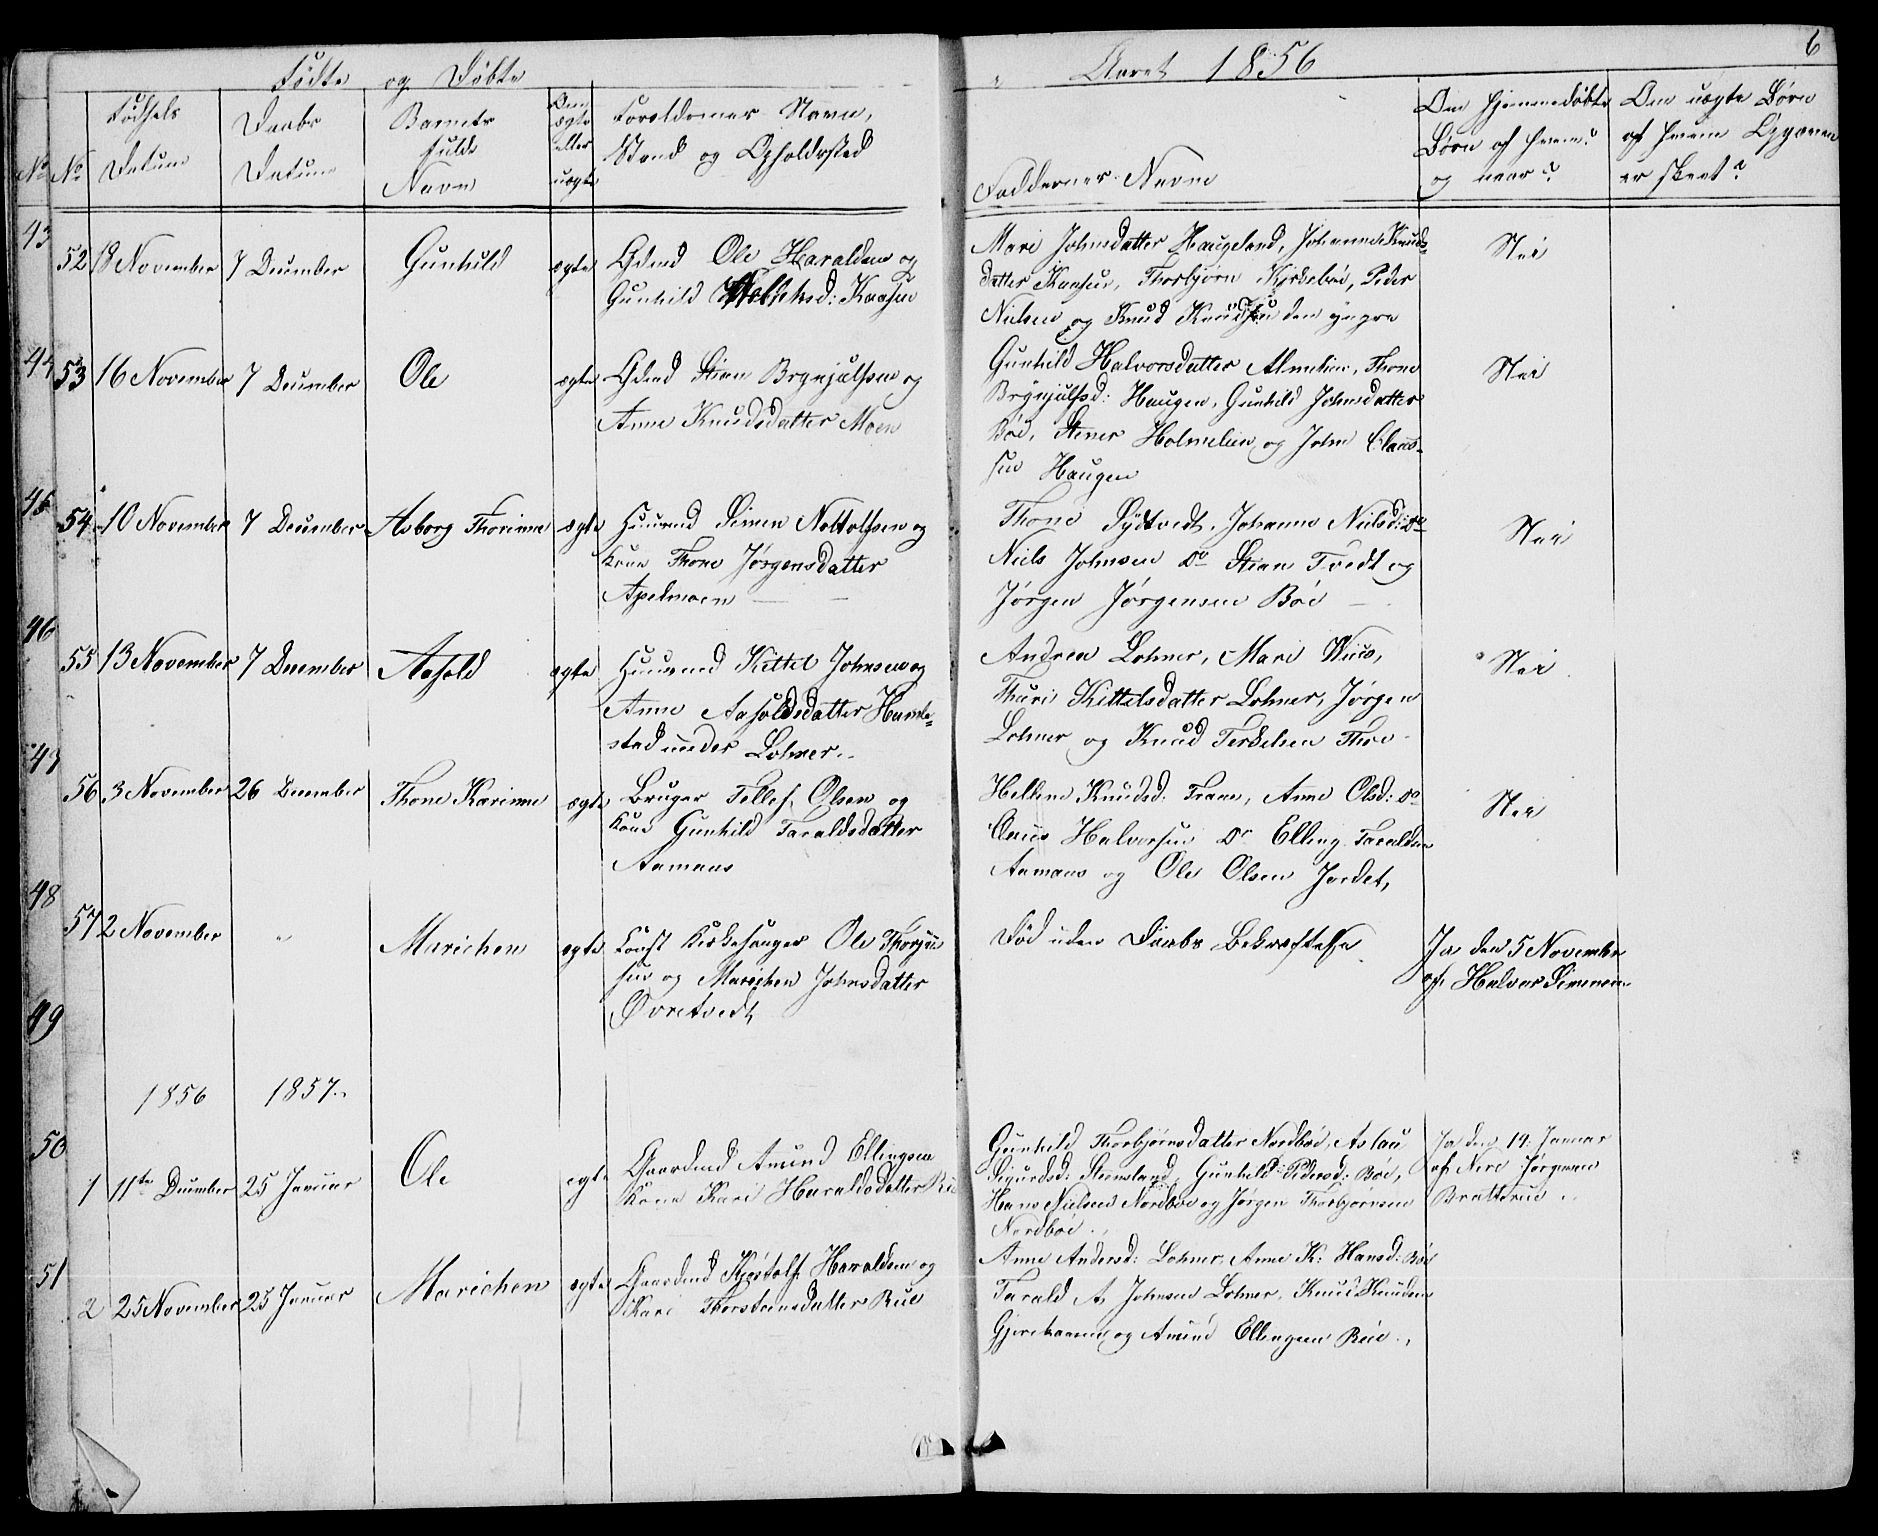 Fødte og Døbte
Aaret 1856
6
No No Fødsels Datum
Daabs Datum
Barnets fulde Navn
Om ægte eller uægte
Forældrenes Navn,
Stand og Opholdssted
Faddernes Navne
Om hjemmedøbte
Børn af hvem?
og naar?
Om uægte Børn
af hvem Opgaven
er skeet?
43
52 18 November 7 December Gunhild ægte Gdmd Ole Haraldsen og
Gunhild Kaasen
Mari Johnsdatter Haugeland, Johanne Knuds-
datter Kaasen, Thorbjørn Kirkebøe, Peder
Nielsen og Knud Knudsen den yngre
Nei
44
53 16 November 7 December Ole ægte Gdmd Stian Brynjulfsen og
Anne Knudsdatter Moen
Gunhild Halvorsdatter Almelien, Thone
Brynjulfsd: Haugen, Gunhild Johnsdatter
Bøe, Stener Holmelien og John Claus-
sen Haugen
Nei
45
54 10 November 7 December Asborg Thorinne ægte Huusmd Simen Nottolfsen og
Kone Thone Jørgensdatter
Apelmoen
Thone Sydtvedt, Johanne Nielsd: Do
Niels Johnsen Do Stian Tvedt og
Jørgen Jørgensen Bøe
Nei
46
55 13 November 7 December Aasold ægte Huusmd Kittel Johnsen og
Anne Aasoldsdatter Hamle-
stad under Lohner
Andrea Lohner, Mari
Thuri Kittelsdatter Lohner, Jørgen
Lohner og Knud Terkelsen
Nei
47
56 3 November 26 December Thone Karinne ægte Bruger Tellef Olsen og
Kone Gunhild Taraldsdatter
Aamaas
Hellene Knudsd: Traae, Anne Olsd: Do
Claus Halvorsen Do Elling Taraldsen
Aamaas og Ole Olsen Jordet,
Nei
48
57 2 November " Marichen ægte Const Kirkesanger Ole
sen og Marichen Johnsdatter
Øvretvedt
Død uden Daabs Bekræftelse
Ja den 5 November
af Halvor Simensen
49
1856 1857
50
1 11te December 25 Januar Ole ægte Gaardmd Amund Ellingsen
Kone Kari Haraldsdatter Rue
Gunhild Thorbjørnsdatter Nordbøe, Aslau
Sigurdsd: Steensland, Gunhild Pedersd: Bøe,
Hans Nielsen Nordbøe og Jørgen Thorbjørnsen
Nordbøe
Ja den 14 Januar
af Neri Jørgensen
51
2 25 November 25 Januar Marichen ægte Gaardmd Kjøstolf Haraldsen og
Kari Thorsteinsdatter Rue
Anne Andersd: Lohner, Anne K: Hansd: Bøe
Tarald A Johnsen Lohner, Knud Knudsen
og Amund Ellingsen Rue